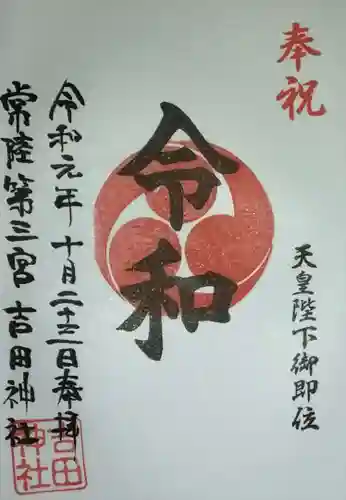 奉祝
天皇陛下御即位
令和
令和元年十月二十三日奉拝
常陸第三宮 吉田神社
吉田
神社